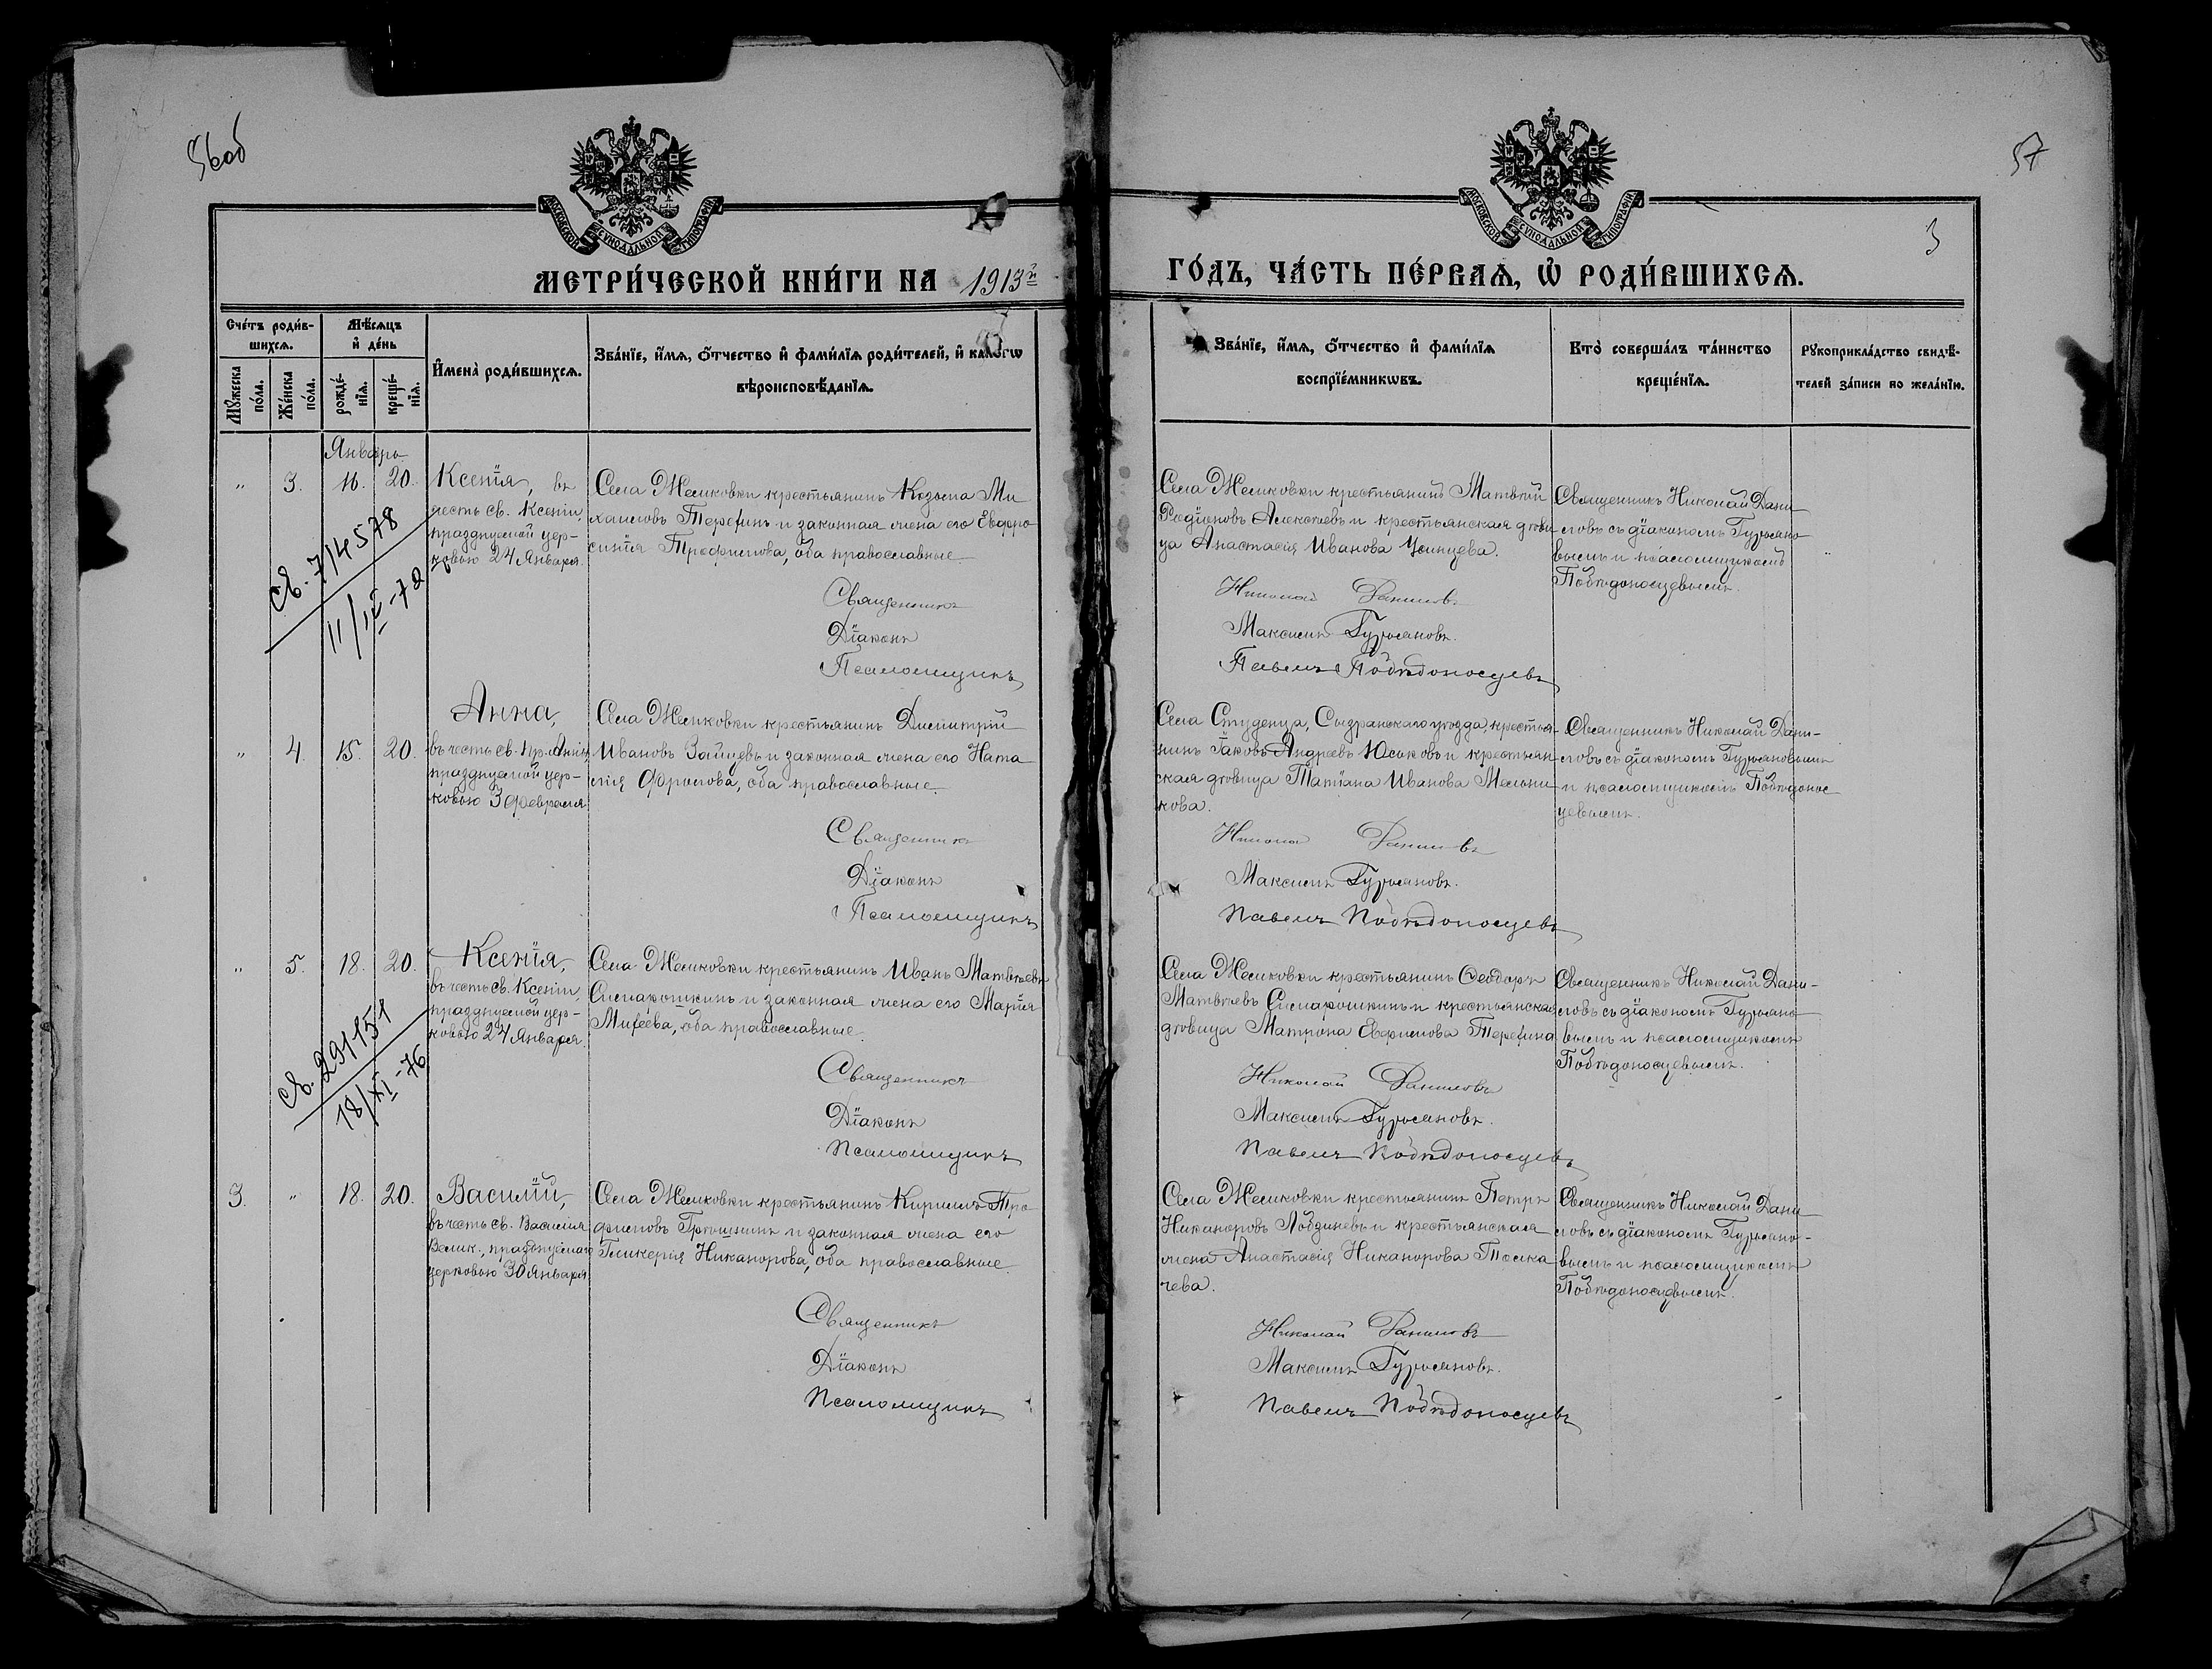 56об
57
3
МОСКОВСКОЙ СѴНОДАЛЬНОЙ ТИПОГРАФІИ
МОСКОВСКОЙ СѴНОДАЛЬНОЙ ТИПОГРАФІИ
МЕТРИ́ЧЕСКОЙ КНИ́ГИ НА 1913й
ГО́ДЪ, ЧА́СТЬ ПЕ́РВАѦ, Ѡ҆ РОДИ́ВШИХСѦ.
Сче́тъ роди́в-
шихсѧ.
Мѣ́сѧцъ
и҆ де́нь
Мꙋ́жеска
по́ла.
Же́нска
по́ла.
рожде́-
нїѧ.
креще́-
нїѧ.
И҆мена̀ роди́вшихсѧ.
Зва́нїе, и҆́мѧ, ѻ҆́тчество и҆ фами́лїѧ роди́телей, и҆ како́гѡ
вѣроисповѣ́данїѧ.
Зва́нїе, и҆́мѧ, ѻ҆́тчество и҆ фами́лїѧ
воспрїе́мникѡвъ.
Кто̀ соверша́лъ та́инство
креще́нїѧ.
Рꙋкоприкла́дство свидѣ́-
телей за́писи по жела́нїю.
Января
" 3. 16. 20. Ксенія, въ
честь св. Ксеніи,
празднуемой цер-
ковью 24 Января.
Села Жемковки крестьянинъ Козьма Ми
хаиловъ Терехинъ и законная жена его Евфро
синія Трофимова, оба православные
Священникъ
Діаконъ
Псаломщикъ
Села Жемковки крестьянинъ Матвѣй
Родіоновъ Алексѣевъ и крестьянская дѣви
ца Анастасія Иванова
Николай Даниловъ
Максимъ Гурьяновъ.
Павелъ Побѣдоносцевъ
Священникъ Николай Дани
ловъ съ діакономъ Гурьяно
вымъ и псаломщикомъ
Побѣдоносцевымъ.
Св. 7/14578
11/IV-72
" 4. 15. 20. Анна,
въ честь св. пр. Анны,
празднуемой цер-
ковью 3 Февраля
Села Жемковки крестьянинъ Димитрій
Ивановъ Зайцевъ и законная жена его Ната
лія Фролова, оба православные.
Священникъ
Діаконъ
Псаломщикъ
Села Студенца, Сызранскаго уѣзда, крестья
нинъ Іаковъ Андреевъ Юсковъ и крестьян
ская дѣвица Татіана Иванова Мельни
кова.
Николай Даниловъ
Максимъ Гурьяновъ.
Павелъ Побѣдоносцевъ
Священникъ Николай Дани-
ловъ съ діакономъ Гурьяновымъ
и псаломщикомъ Побѣдонос
цевымъ.
" 5. 18. 20. Ксенія,
въ честь св. Ксеніи,
празднуемой цер-
ковью 24 Января.
Села Жемковки крестьянинъ Иванъ Матвѣевъ
Симарошкинъ и законная жена его Марія
Михеева, оба православные
Священникъ
Діаконъ
Псаломщикъ
Села Жемковки крестьянинъ Ѳеодоръ
Матвѣевъ Симарошкинъ и крестьянская
дѣвица Матрона Евфимова Терехина
Николай Даниловъ
Максимъ Гурьяновъ.
Павелъ Побѣдоносцевъ
Священникъ Николай Дани-
ловъ съ діакономъ Гурьяно
вымъ и псаломщикомъ
Побѣдоносцевымъ.
Св. 291151
18/XI-76
3. " 18. 20. Василій,
въ честь св. Василія
Велик., празднуемаго
церковью 30 Января
Села Жемковки крестьянинъ Кириллъ Тро
фимовъ Грѣшнинъ и законная жена его
Гликерія Никанорова, оба православные
Священникъ
Діаконъ
Псаломщикъ
Села Жемковки крестьянинъ Петръ
Никаноровъ Лобзиневъ и крестьянская
жена Анастасія Никанорова Толка
чева.
Николай Даниловъ
Максимъ Гурьяновъ.
Павелъ Побѣдоносцевъ
Священникъ Николай Дани
ловъ съ діакономъ Гурьяно-
вымъ и псаломщикомъ
Побѣдоносцевымъ.